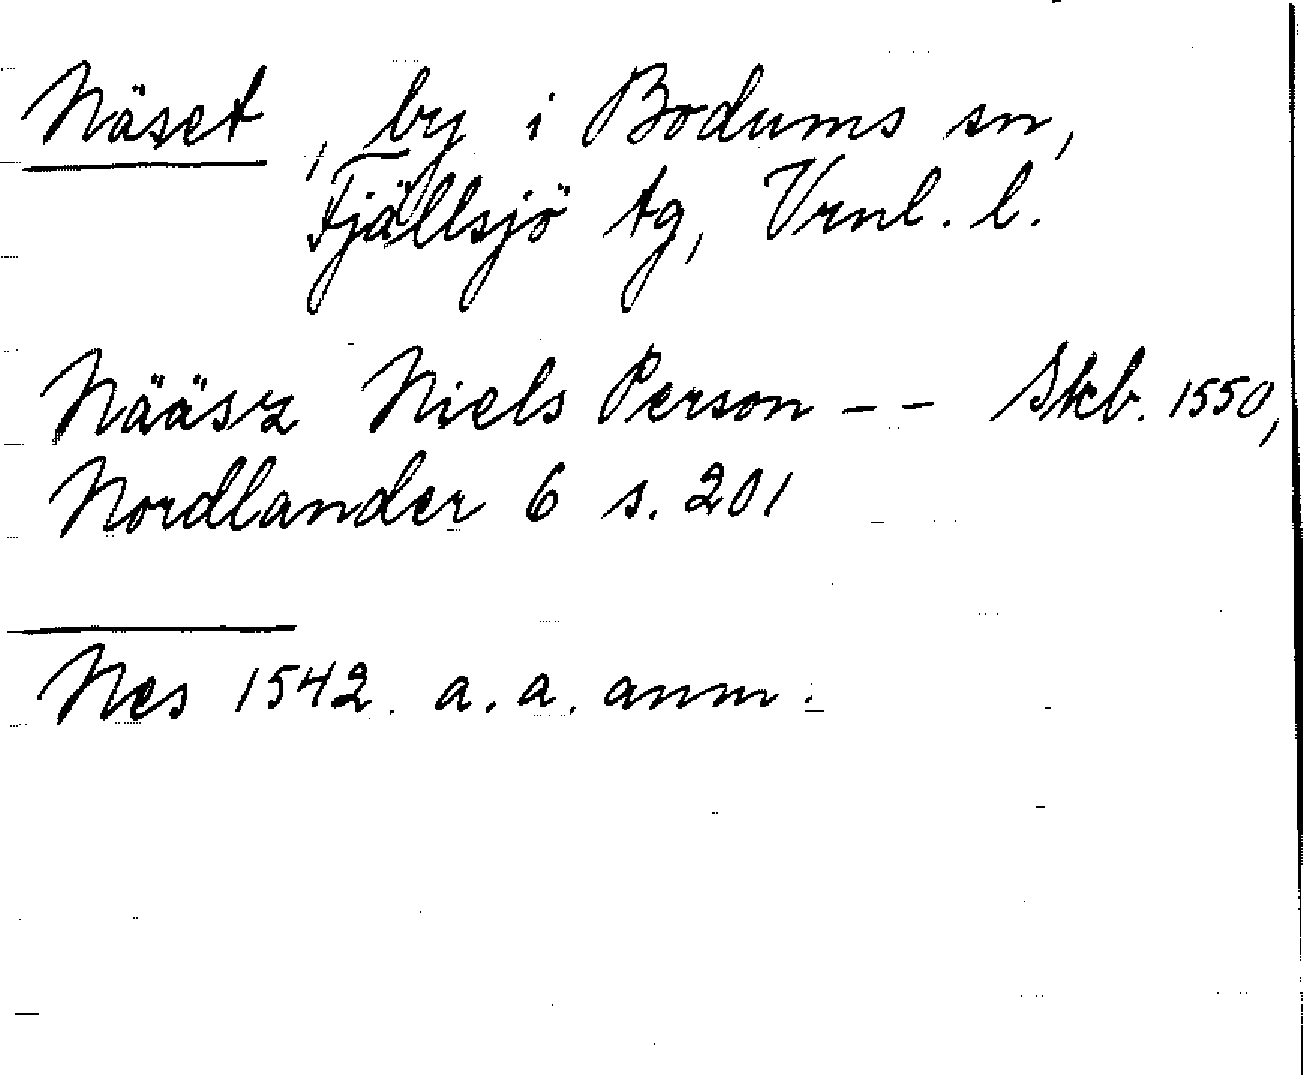 Näset, by i Bodums sn,
Fjällsjö tg, Vrnl. l.
Nääsz Niels Person -- Skb. 1550,
Nordlander 6 s. 201
Nes 1542. a. a. anm.